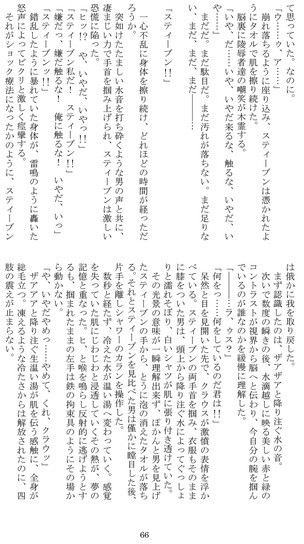 て思っていた。なのに。
「ウ……ア……っ」
崩れ落ちるように座り込み、スティーブンは憑かれたよ
うにタオルで肌を擦り続けた。
脳裏に陵辱者達の嘲笑が木霊する。
「いや、だ……いや、いやだ来るな、触るな、いやだ、い
や、だ」
まだ、まだ駄目だ。まだ汚れが落ちない、まだ足りな
い、まだ、まだ、まだ。
「スティーブン!!!」
一心不乱に身体を擦り続け、どれほどの時間が経っただ
ろう。
突如けたたましい水音を打ち砕くような男の声と共に、
凄まじい力で手首を掴み上げられ、スティーブンは激しい
恐慌に陥った。
「ヒッ!? や、いやだ、いやっ!」
「スティーブン私だ! スティーブン!!!」
「嫌だっ、嫌だ触るな! 俺に触るな! いやだ、いやっ」
「スティーブンッ!!!」
錯乱したように暴れていた身体が、雷鳴のように轟いた
怒声によってビクリと激しく痙攣する。
それがショック療法になったかのように、スティーブン
は俄かに我を取り戻した。
まず認識したのは、ザアザアと降り注ぐ水の音。
次いで数度の瞬きの後、水滴越しに映る美しい赤と緑の
コントラストが視界から脳へと伝わり、今自分の腕を掴ん
でいるのが誰なのかを緩慢に理解した。
「――――ラ、ウス?」
「何をっ……何をしているのだ君は!!!」
呆然と目を見開いた先で、クラウスが憤激の表情を浮か
べている。スティーブンの両手首を掴み、衣服もそのまま
に膝をついた男は、頭上から降り注ぐ水によってぐっしょ
りと濡れそぼり、白いシャツが肌に張り付き透けていた。
その光景の意味が一瞬理解出来ず、ぽかんと男を見上げ
たスティーブンの手から、とうに泡の消えたタオルが落ち
る。それとスティーブンを見比べた男は僅かに瞠目した後、
片手を離しシャワーのカランを操作した。
数秒と経たず、冷えた水が温い湯へ変わっていく。感覚
を失っていた肌にじわじわと浸透していくその熱が、夢の
記憶と重なった。ヒ、と喉を鳴らし反射的に逃げようとす
るも、掴まれたままの右手は鉄の拘束具のようにその場か
ら動かない。
「や、いやだやめっ……やめて、くれ、クラウッ」
ザアアアと降り注ぐ生温い湯が肌を伝う感触に、全身が
総毛立つ。凍えるような冷たさからは解放されたのに、四
肢の震えが止まらない。
66